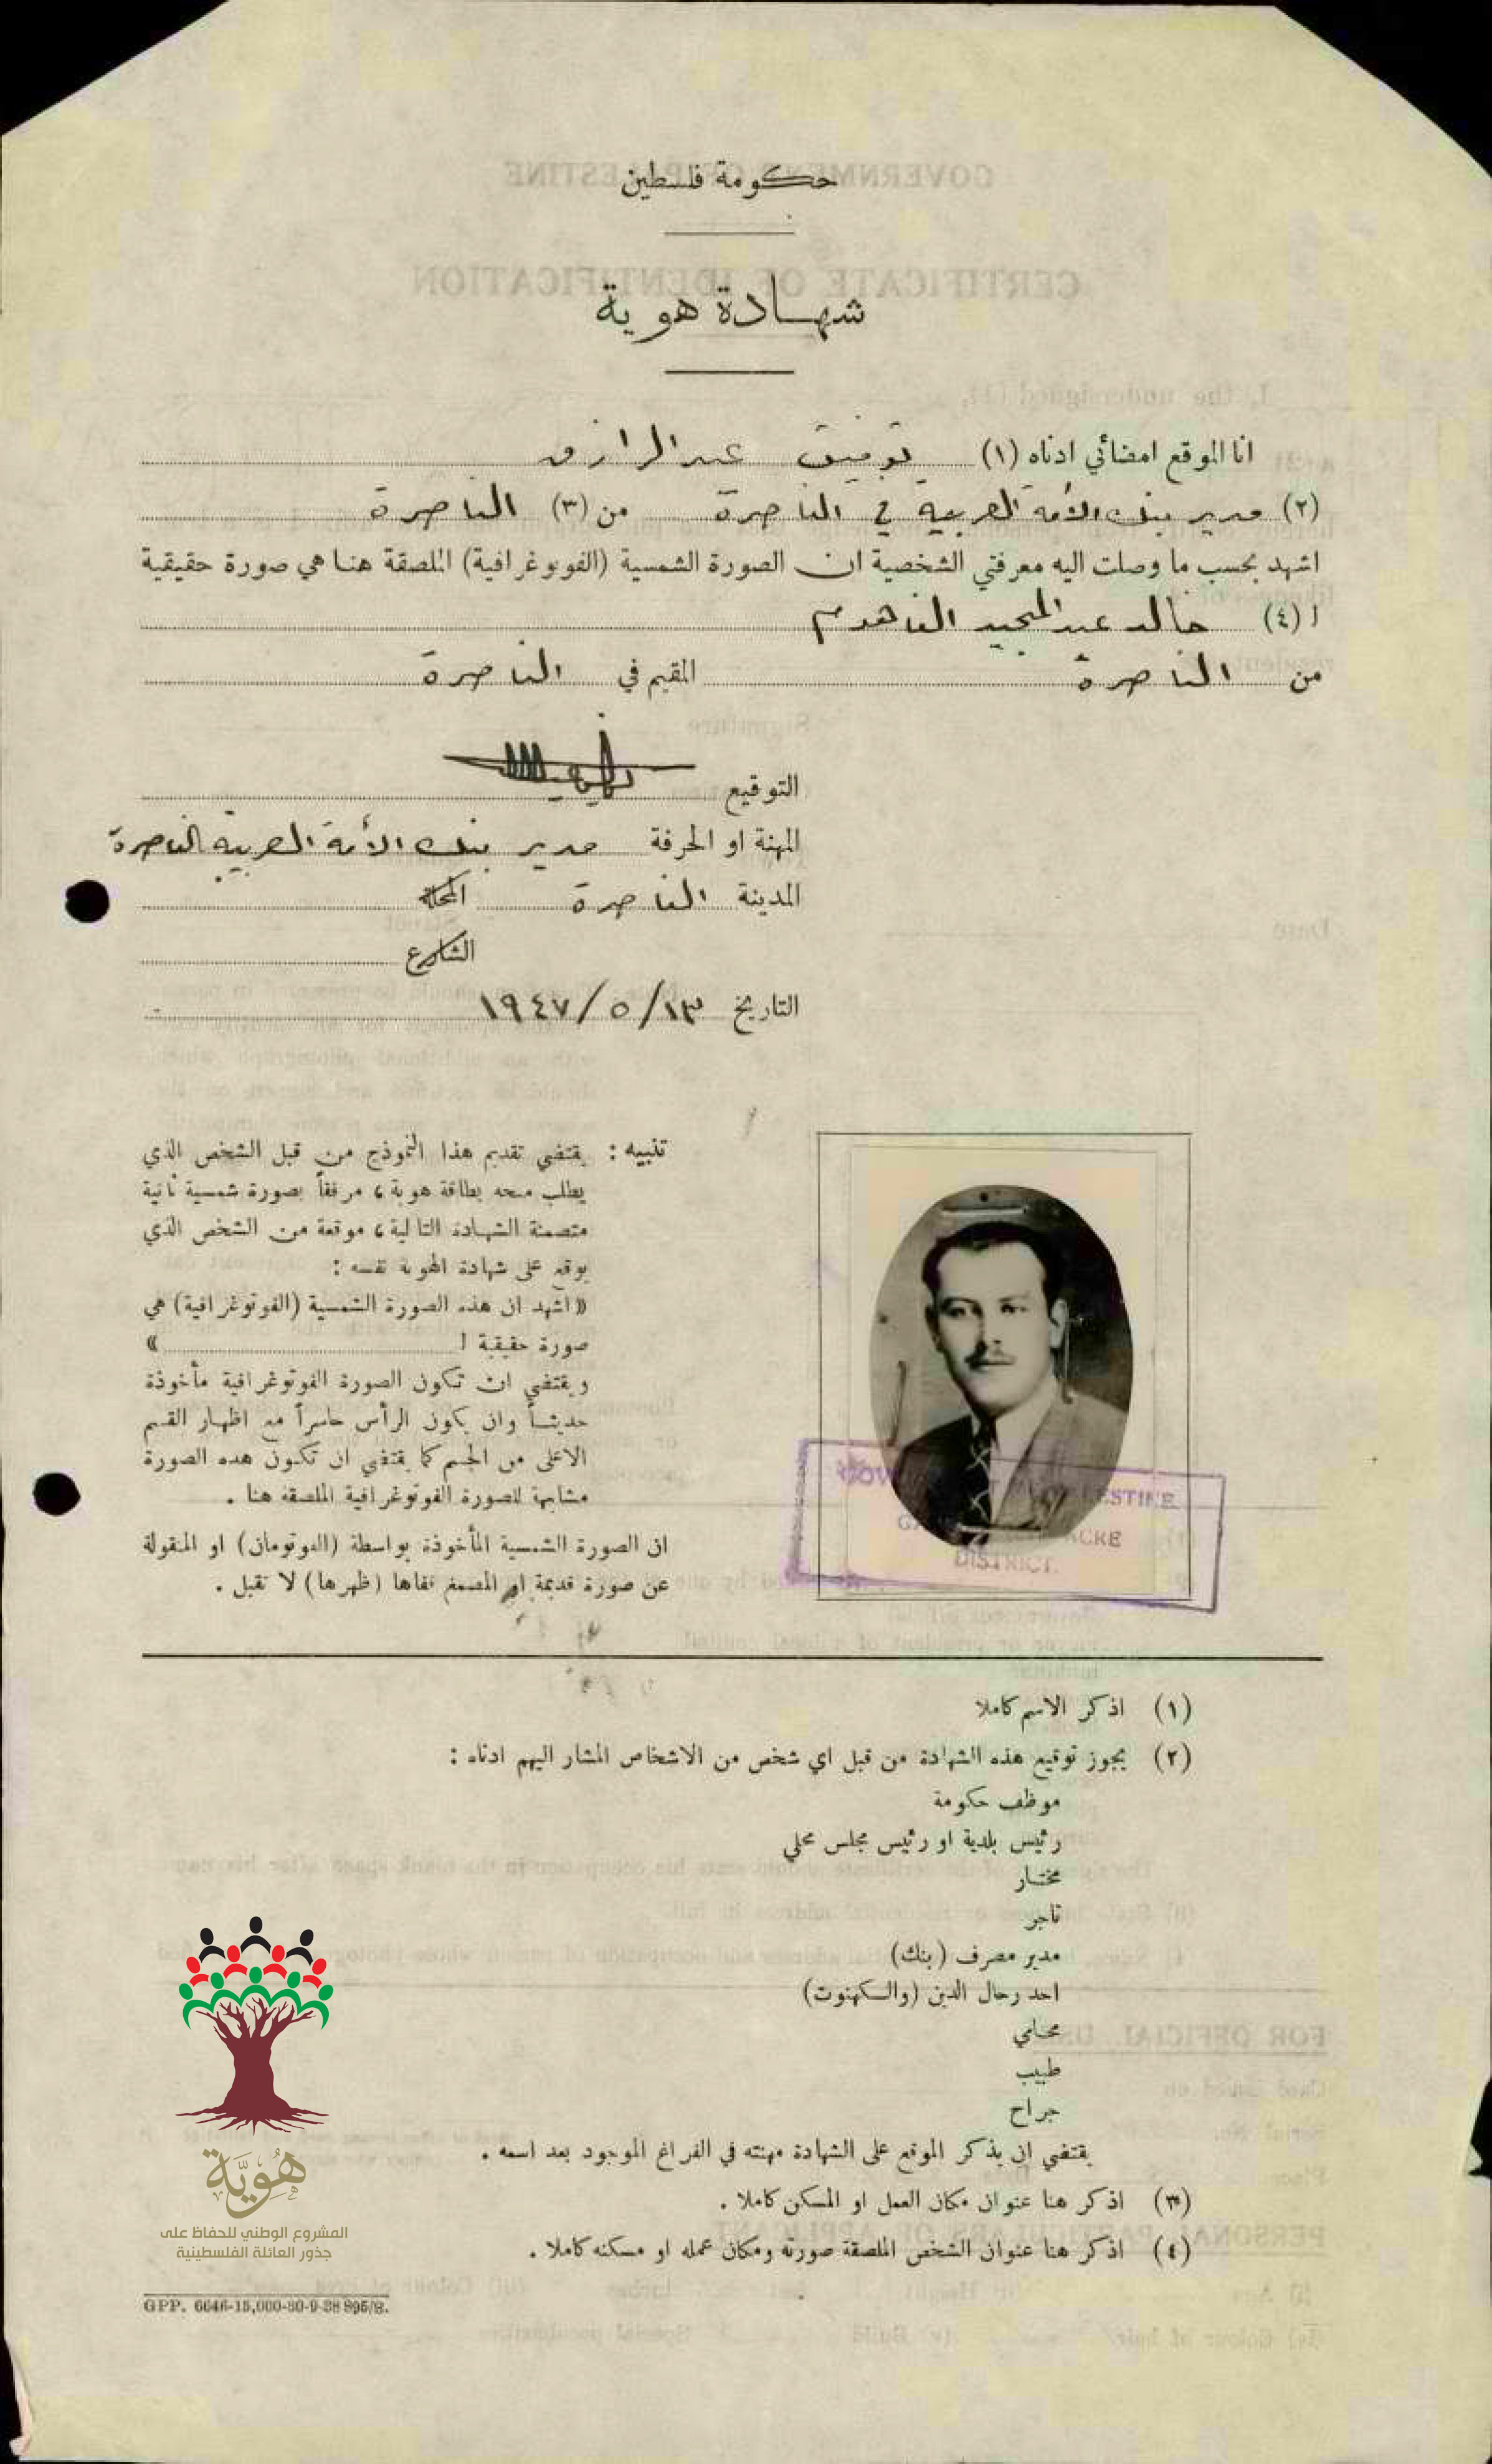 حكومة فلسطين
شهادة هوية
انا الموقع امضائي ادناه (١) توفيق عبد الرازق
(٢) مدير بنك الأمة العربية في الناصرة من (٣) الناصرة
اشهد بحسب ما وصلت اليه معرفتي الشخصية ان الصورة الشمسية (الفوتوغرافية) الملصقة هنا هي صورة حقيقية
ل (٤) خالد عبد المجيد الفاهوم
من الناصرة المقيم في الناصرة
التوقيع
المهنة او الحرفة مدير بنك الأمة العربية الناصرة
المدينة الناصرة المحلة
الشارع
التاريخ ١٣/٥/١٩٤٧
تنبيه : يقتضي تقديم هذا النموذج من قبل الشخص الذي
يطلب منحه بطاقة هوية ، مرفقاً بصورة شمسية ثانية
متضمنة الشهادة التالية ، موقعة من الشخص الذي
يوقع على شهادة الهوية نفسه :
« اشهد ان هذه الصورة الشمسية (الفوتوغرافية) هي
صورة حقيقية ل »
ويقتضي ان تكون الصورة الفوتوغرافية مأخوذة
حديثاً وان يكون الرأس حاسراً مع اظهار القسم
الاعلى من الجسم كما يقتضي ان تكون هذه الصورة
مشابهة للصورة الفوتوغرافية الملصقة هنا .
ان الصورة الشمسية المأخوذة بواسطة (الفوتومان) او المنقولة
عن صورة قديمة او المصمغ قفاها (ظهرها) لا تقبل .
PALESTINE
ACRE
DISTRICT.
(١) اذكر الاسم كاملا
(٢) يجوز توقيع هذه الشهادة من قبل اي شخص من الاشخاص المشار اليهم ادناه :
موظف حكومة
رئيس بلدية او رئيس مجلس محلي
مختار
تاجر
مدير مصرف (بنك)
احد رجال الدين (والكهنوت)
محامي
طبيب
جراح
يقتضي ان يذكر الموقع على الشهادة مهنته في الفراغ الموجود بعد اسمه .
(٣) اذكر هنا عنوان مكان العمل او المسكن كاملا .
(٤) اذكر هنا عنوان الشخص الملصقة صورته ومكان عمله او مسكنه كاملا .
هُوِيَّة
المشروع الوطني للحفاظ على
جذور العائلة الفلسطينية
GPP. 6646-15,000-30-9-38 895/S.